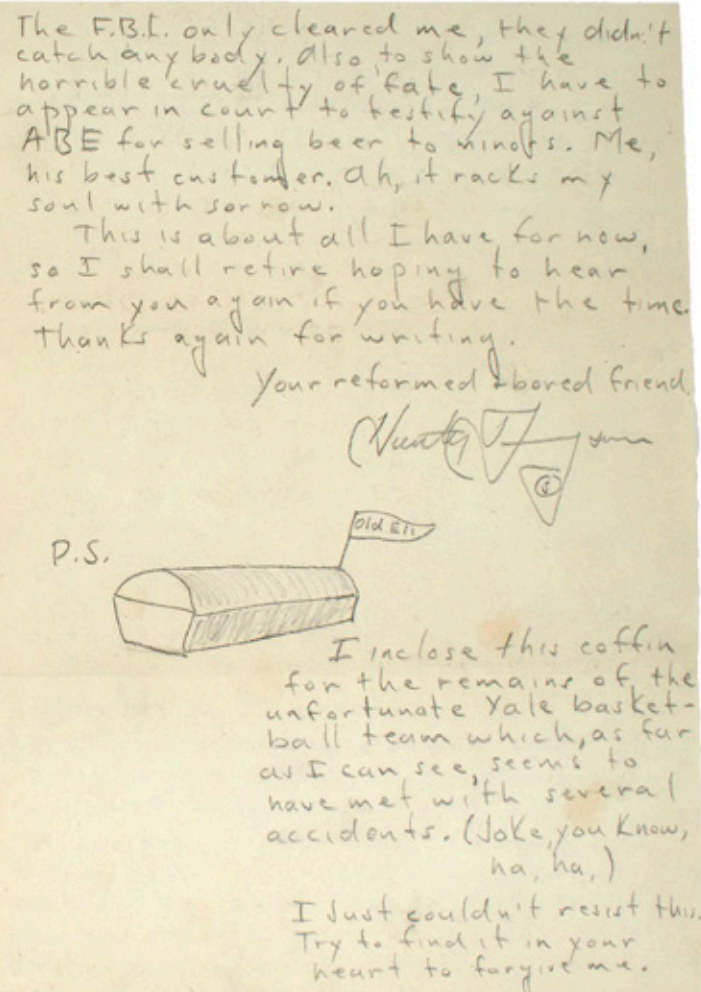 The F.B.I. only cleared me, they didn't
catch anybody. Also to show the
horrible cruelty of fate, I have to
appear in court to testify against
ABE for selling beer to minors. Me,
his best customer. Ah, it racks my
soul with sorrow.
This is about all I have for now,
so I shall retire hoping to hear
from you again if you have the time.
Thanks again for writing.
Your reformed & bored friend,
P.S.
Old Eli
I inclose this coffin
for the remains of the
unfortunate Yale basket-
ball team which, as far
as I can see, seems to
have met with several
accidents. (Joke, you know,
ha, ha,)
I Just couldn't resist this.
Try to find it in your
heart to forgive me.